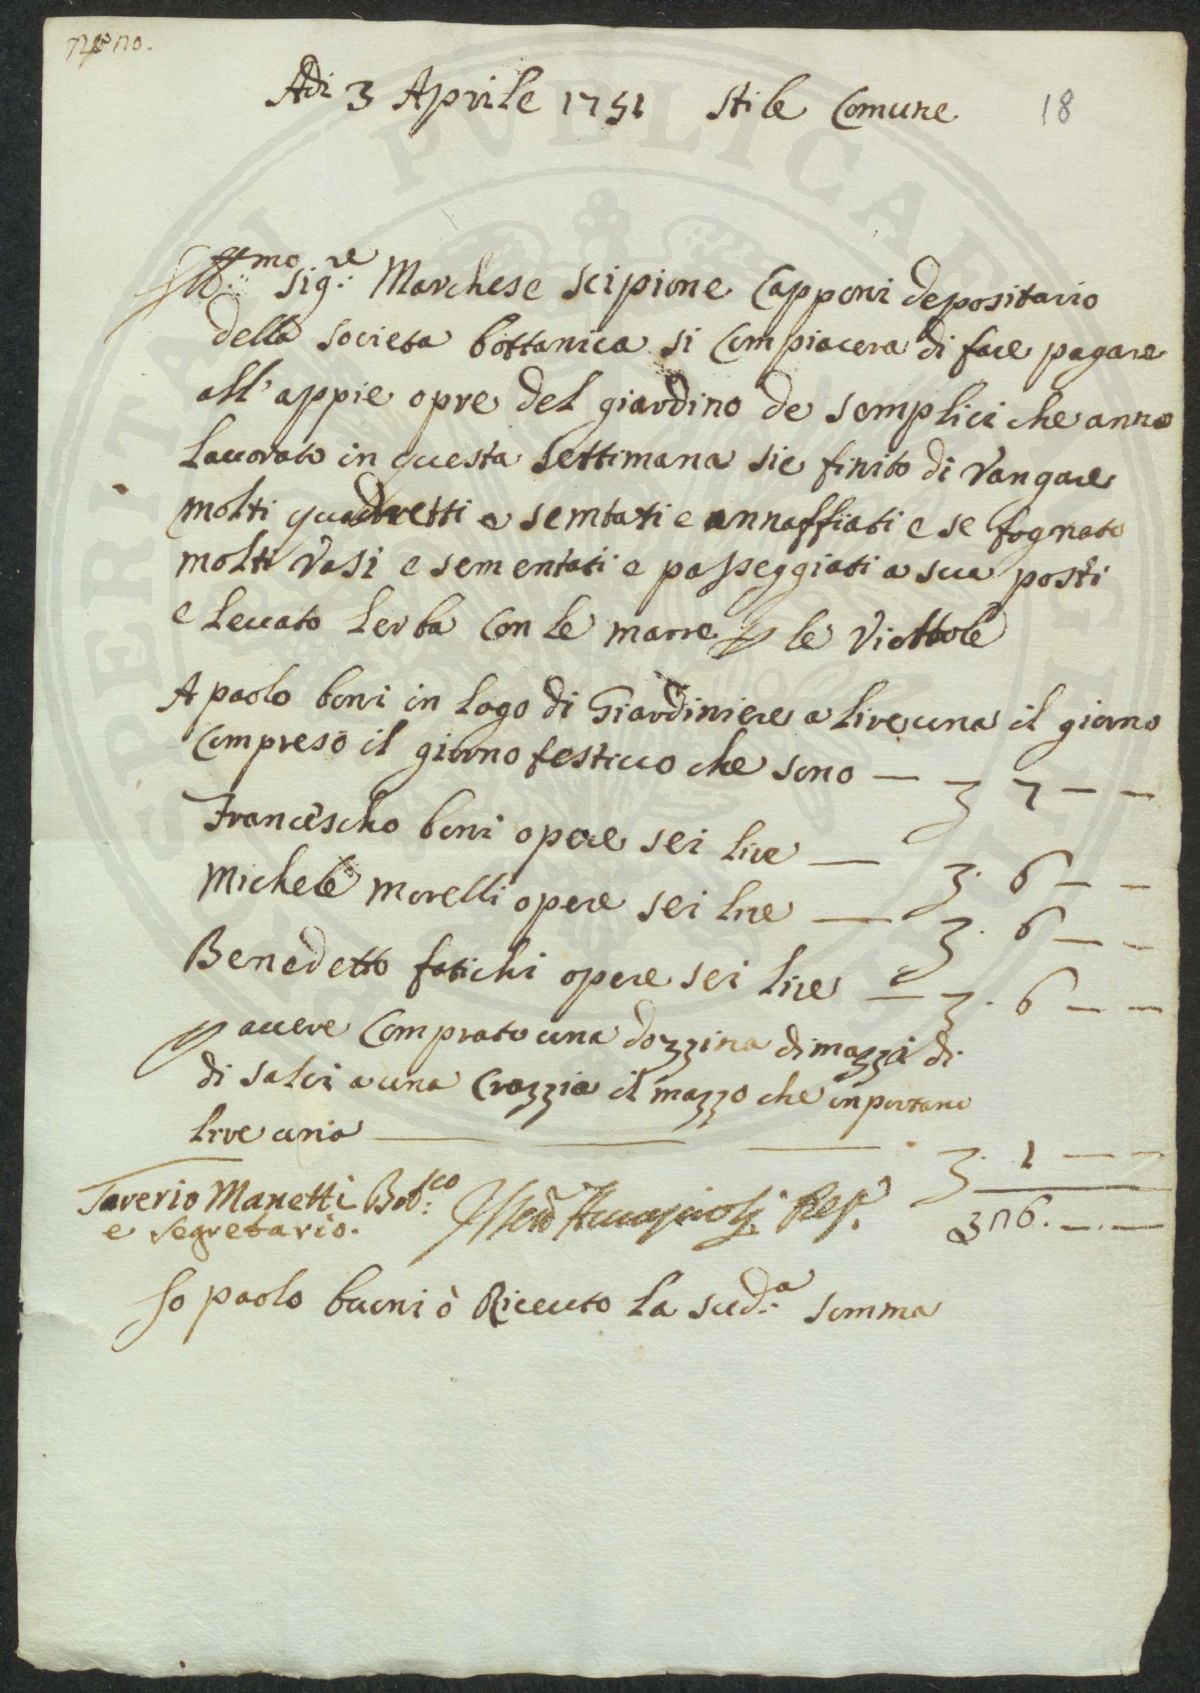 Adi 3 Aprile 1751 stile Comune 18
Ill:mo Sig:re Marchese Scipione Capponi depositario
della Societa bottanica si Compiacera di fare pagare
all'appie opre del giardino de semplici che anno
lauorato in questa settimana sie finito di Vangare
molti quadretti e semtati e annaffiati e se fognato
molti Vasi e sementati e passeggiati a sua posti
e leuato lerba Con le marre p le Viottole
A paolo boni in logo di Giardiniere a lire una il giorno
Compreso il giorno festiuo che sono — 3 7 — —
Francescho boni opere sei lire — 3. 6 — —
Michele Morelli opere sei lire — 3. 6 — —
Benedetto fatichi opere sei lire — 3. 6 — —
p auere Comprato una dozzina di mazzi di
di salci a una Crazzia il mazzo che inportano
lire una — 3. 1 — —
Saverio Manetti Bot:sco
e Segretario.
376. — . —
Io paolo buoni ò Riceuto la sud:a somma
PVBLICAE
SPERITATI